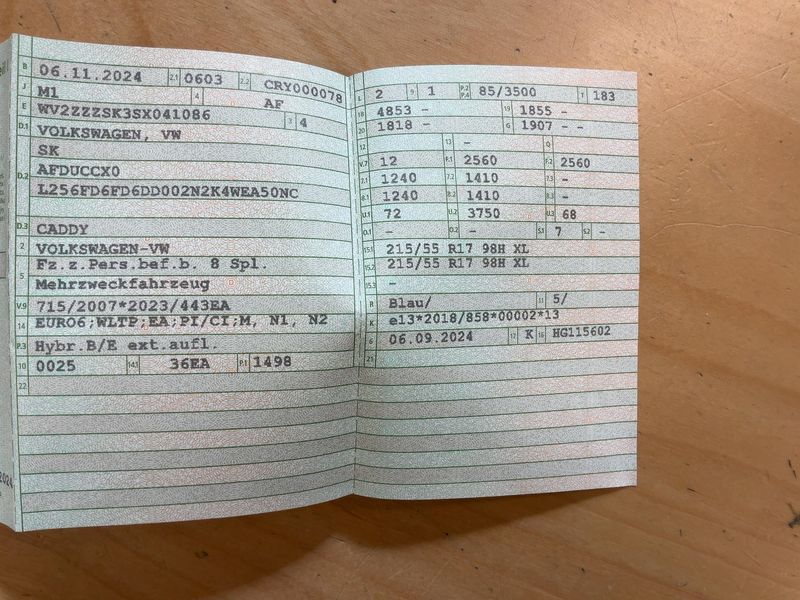 B 06.11.2024 2.1 0603 2.2 CRY000078
J M1 4 AF
E WV2ZZZSK3SX041086 3 4
D.1 VOLKSWAGEN, VW
SK
D.2 AFDUCCX0
L256FD6FD6DD002N2K4WEA50NC
D.3 CADDY
2 VOLKSWAGEN-VW
5 Fz.z.Pers.bef.b. 8 Spl.
Mehrzweckfahrzeug
V.9 715/2007*2023/443EA
14 EURO6;WLTP;EA;PI/CI;M, N1, N2
P.3 Hybr.B/E ext.aufl.
10 0025 14.1 36EA P.1 1498
22
L 2 9 1 P.2 P.4 85/3500 T 183
18 4853 - 19 1855 -
20 1818 - G 1907 - -
12 - 13 - Q
V.7 12 F.1 2560 F.2 2560
7.1 1240 7.2 1410 7.3 -
8.1 1240 8.2 1410 8.3 -
U.1 72 U.2 3750 U.3 68
O.1 - O.2 - S.1 7 S.2 -
15.1 215/55 R17 98H XL
15.2 215/55 R17 98H XL
15.3 -
R Blau/ 11 5/
K e13*2018/858*00002*13
6 06.09.2024 17 K 16 HG115602
21